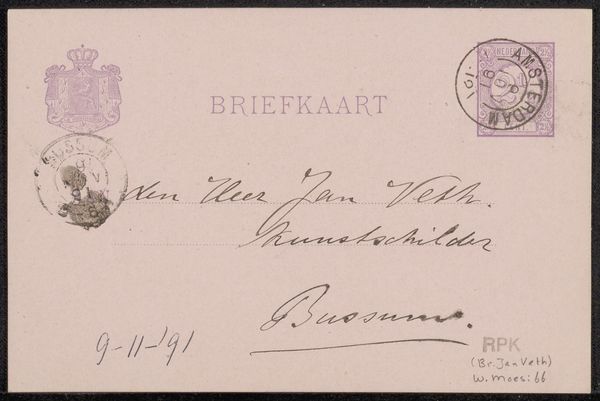 BRIEFKAART
NEDERLAND
AMSTERDAM
BUSSUM
den Heer Jan Veth.
Kunstschilder
Bussum.
9-11-'91
RPK
(Br. Jan Veth)
W. Moes: 66